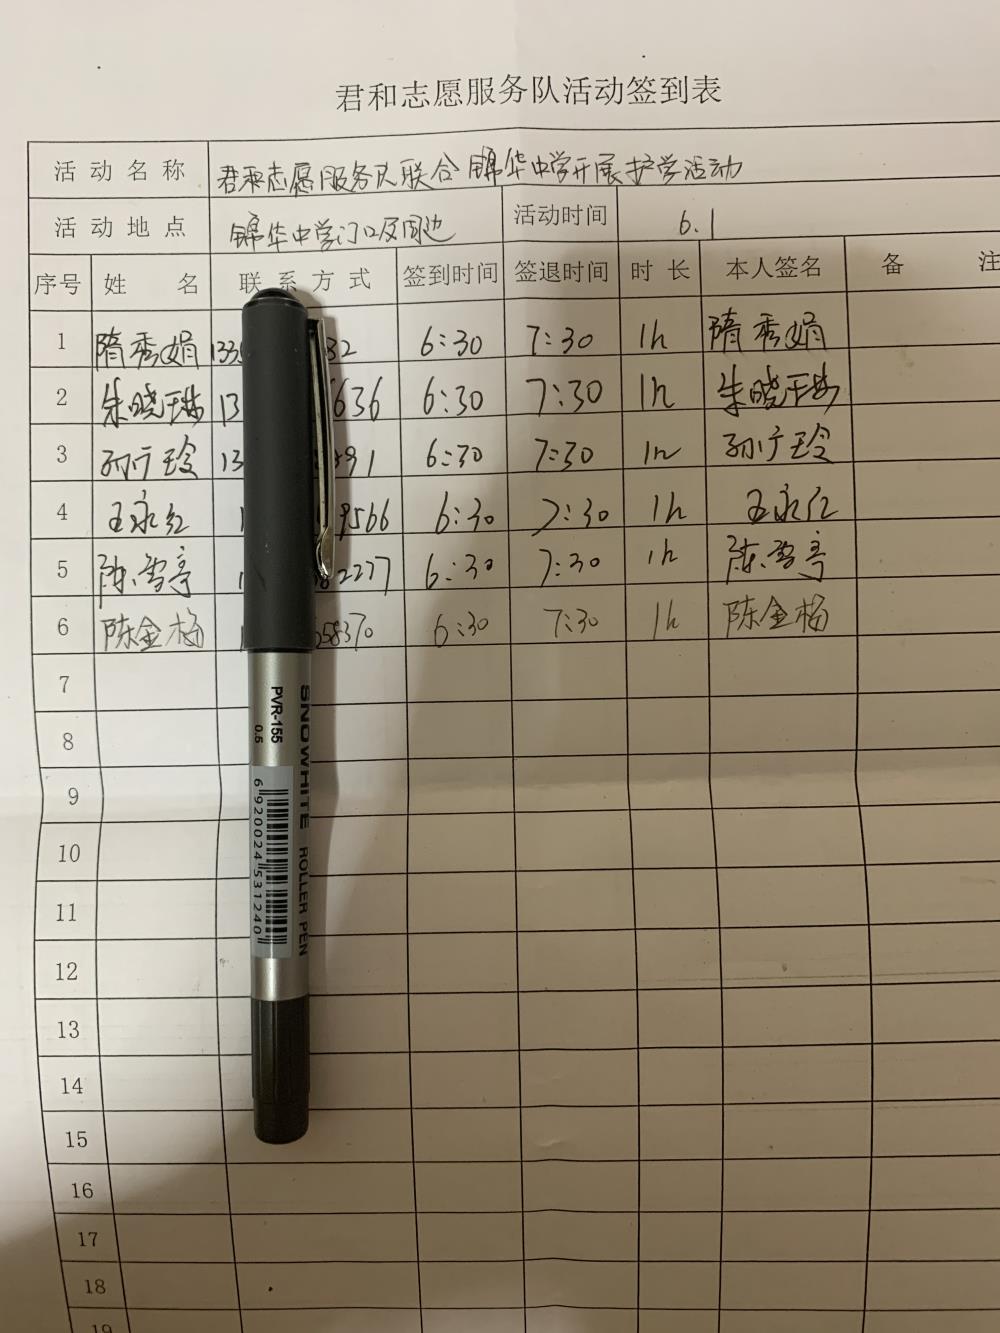 君和志愿服务队活动签到表
活动名称 君和志愿服务队联合锦华中学开展护学活动
活动地点 锦华中学门口及周边 活动时间 6.1
序号 姓名 联系方式 签到时间 签退时间 时长 本人签名 备注
1 隋秀娟 133 32 6:30 7:30 1h 隋秀娟
2 朱晓琳 13 6636 6:30 7:30 1h 朱晓琳
3 孙广玲 13 91 6:30 7:30 1h 孙广玲
4 王永红 1 9566 6:30 7:30 1h 王永红
5 陈雪亭 1 2277 6:30 7:30 1h 陈雪亭
6 陈金梅 1 58370 6:30 7:30 1h 陈金梅
7
8
9
10
11
12
13
14
15
16
17
18
19
SNOWHITE ROLLER PEN
PVR-155 0.5
6920024531240